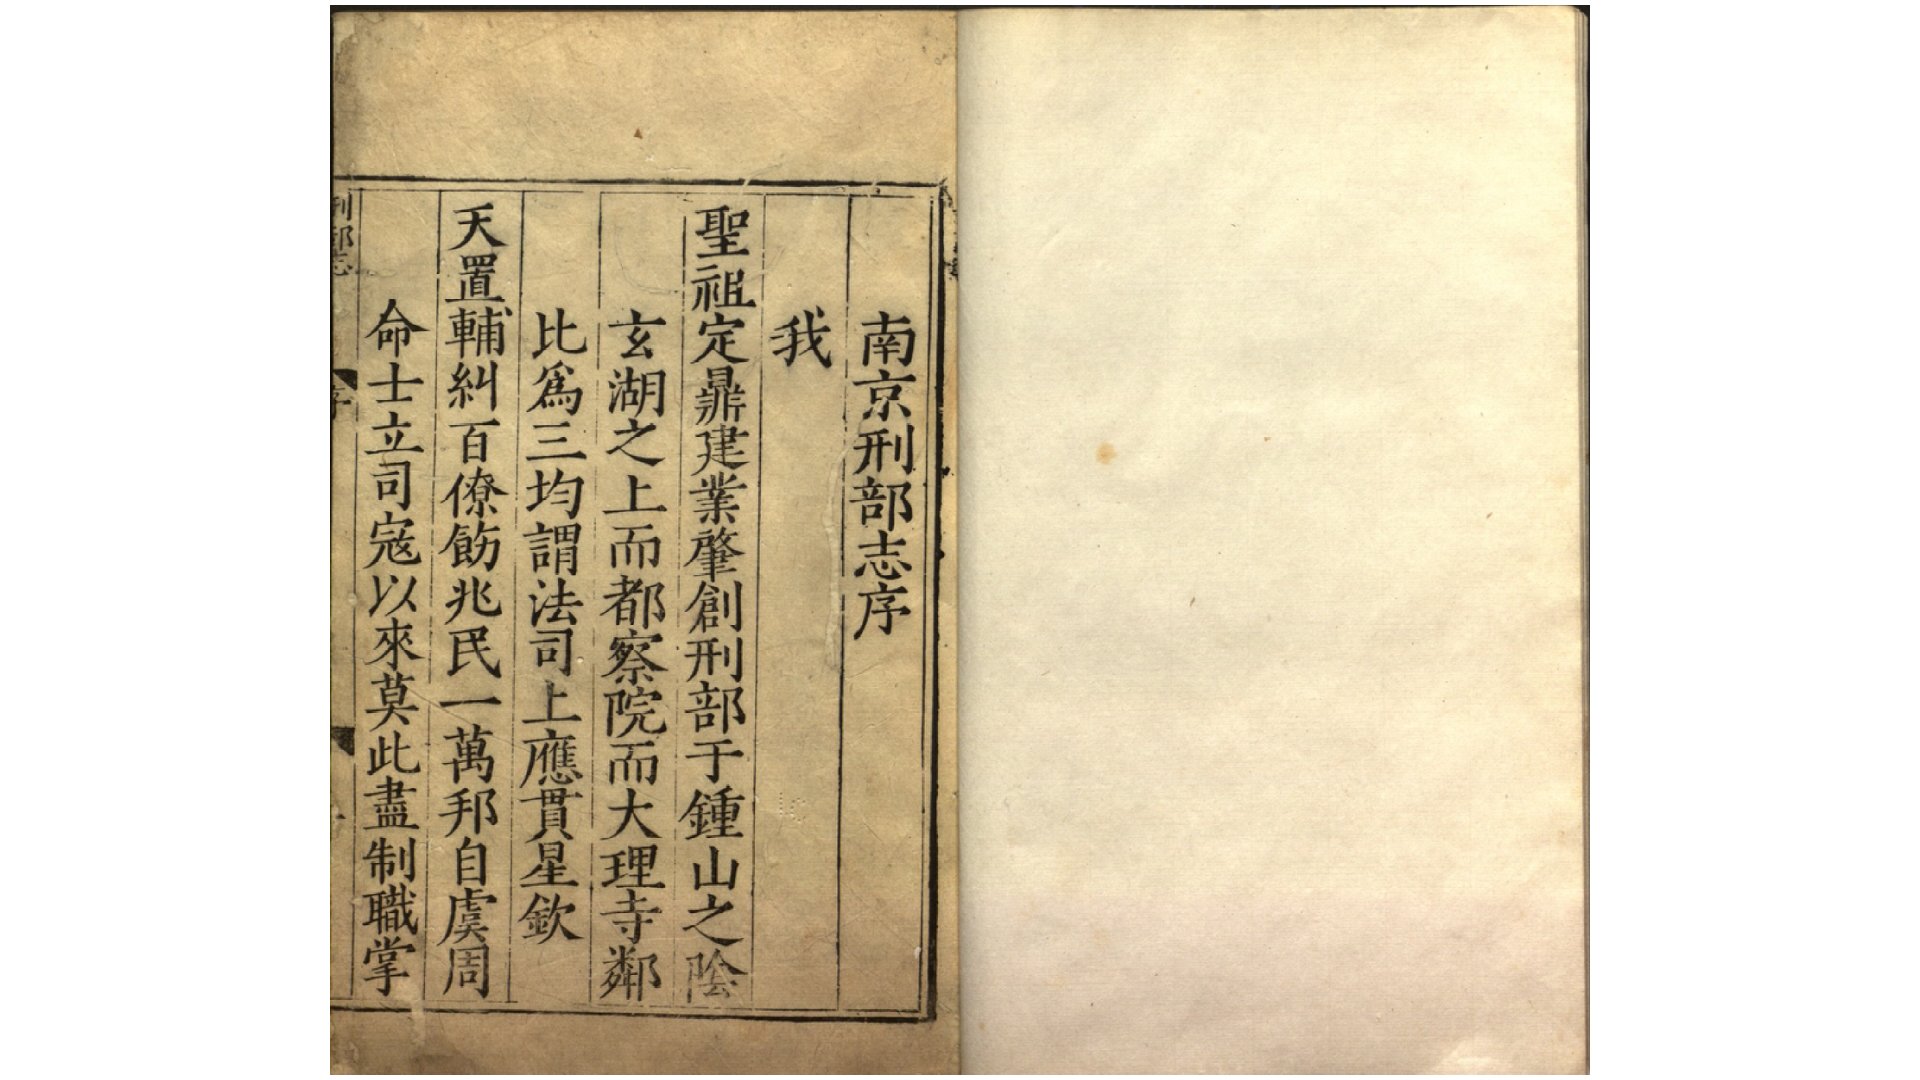 南京刑部志序
我
聖祖定鼎建業肇創刑部于鍾山之陰
玄湖之上而都察院而大理寺鄰
比爲三均謂法司上應貫星欽
天置輔糾百僚飭兆民一萬邦自虞周
命士立司寇以來莫此盡制職掌
刑部志
序